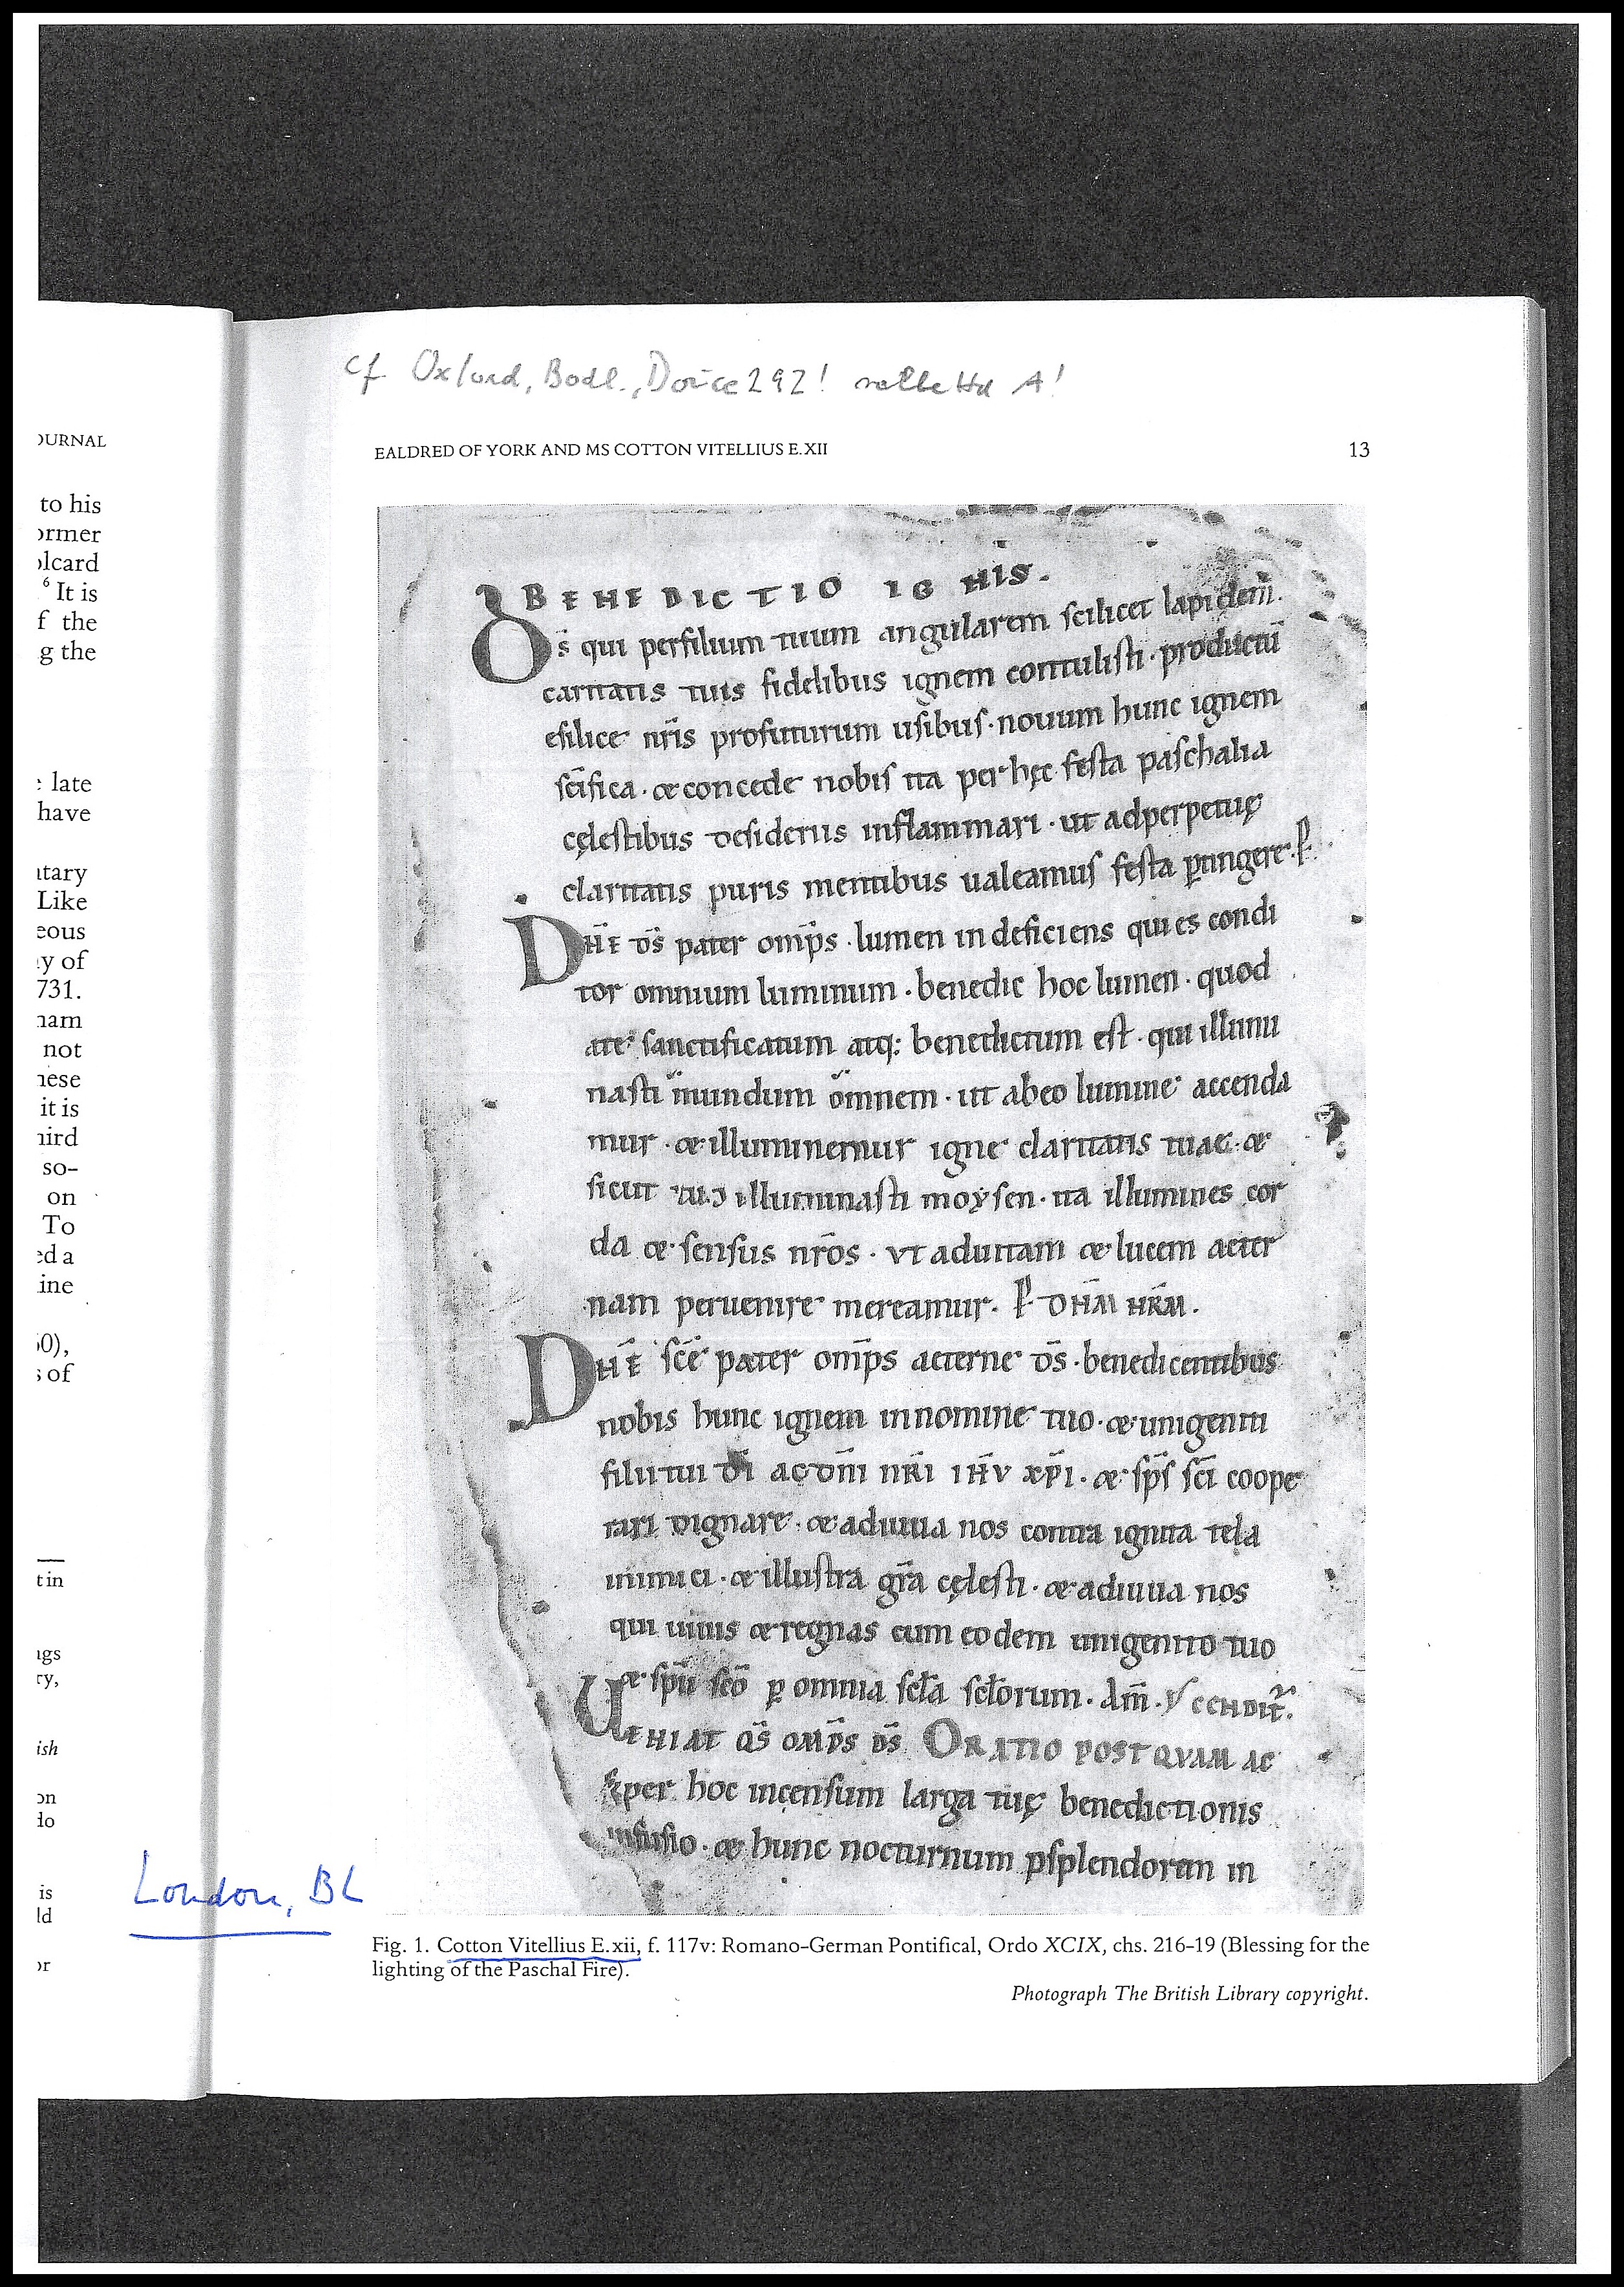 cf Oxford, Bodl., Douce 292!
OURNAL
to his
ormer
olcard
⁶ It is
f the
g the
: late
have
itary
Like
eous
y of
731.
nam
not
nese
it is
hird
so-
on
To
ed a
ine
0),
s of
t in
ngs
ry,
ish
on
do
is
ld
or
EALDRED OF YORK AND MS COTTON VITELLIUS E.XII 13
BENEDICTIO IGNIS.
D̄s qui perfilium tuum angularem scilicet lapidem̄.
caritatis tuis fidelibus ignem contulisti · productū
esilice nr̄is profuturum usibus · nouum hunc ignem
sc̄ifica · & concede nobis ita per hęc festa paschalia
cęlestibus desideriis inflammari · ut adperpetuę
claritatis puris mentibus ualeamus festa ꝑtingere · P̄.
DN̄E DS̄ pater omp̄s · lumen indeficiens qui es condi
tor omnium luminum · benedic hoc lumen · quod
ate sanctificatum atq: benedictum est · qui illumi
nasti mundum omnem · ut abeo lumine accenda
mur · & illuminemur igne claritatis tuae · &
sicut illuminasti moysen · ita illumines cor
da & sensus nr̄os · vt aduitam & lucem aeter
nam peruenire mereamur. P̄ DN̄M NR̄M.
DN̄E sc̄e pater omp̄s aeterne ds̄ · benedicentibus
nobis hunc ignem innomine tuo · & unigeniti
filii tui dī ac dn̄i nr̄i ıh̄v xp̄ı · & sp̄s sc̄i coope
rari dignare · & adiuua nos contra ignita tela
inimici · & illustra gr̄a cęlesti · & adiuua nos
qui uiuis & regnas cum eodem unigenito tuo
& sp̄u sc̄o ꝑ omnia scl̄a scl̄orum · Am̄. CENDIT̄.
UENIAT QS̄ OMP̄S DS̄ ORATIO POSTQVAM AC
per hoc incensum larga tuę benedictionis
infusio · & hunc nocturnum ꝑsplendorem in
London, BL
Fig. 1. Cotton Vitellius E.xii, f. 117v: Romano-German Pontifical, Ordo XCIX, chs. 216-19 (Blessing for the
lighting of the Paschal Fire).
Photograph The British Library copyright.